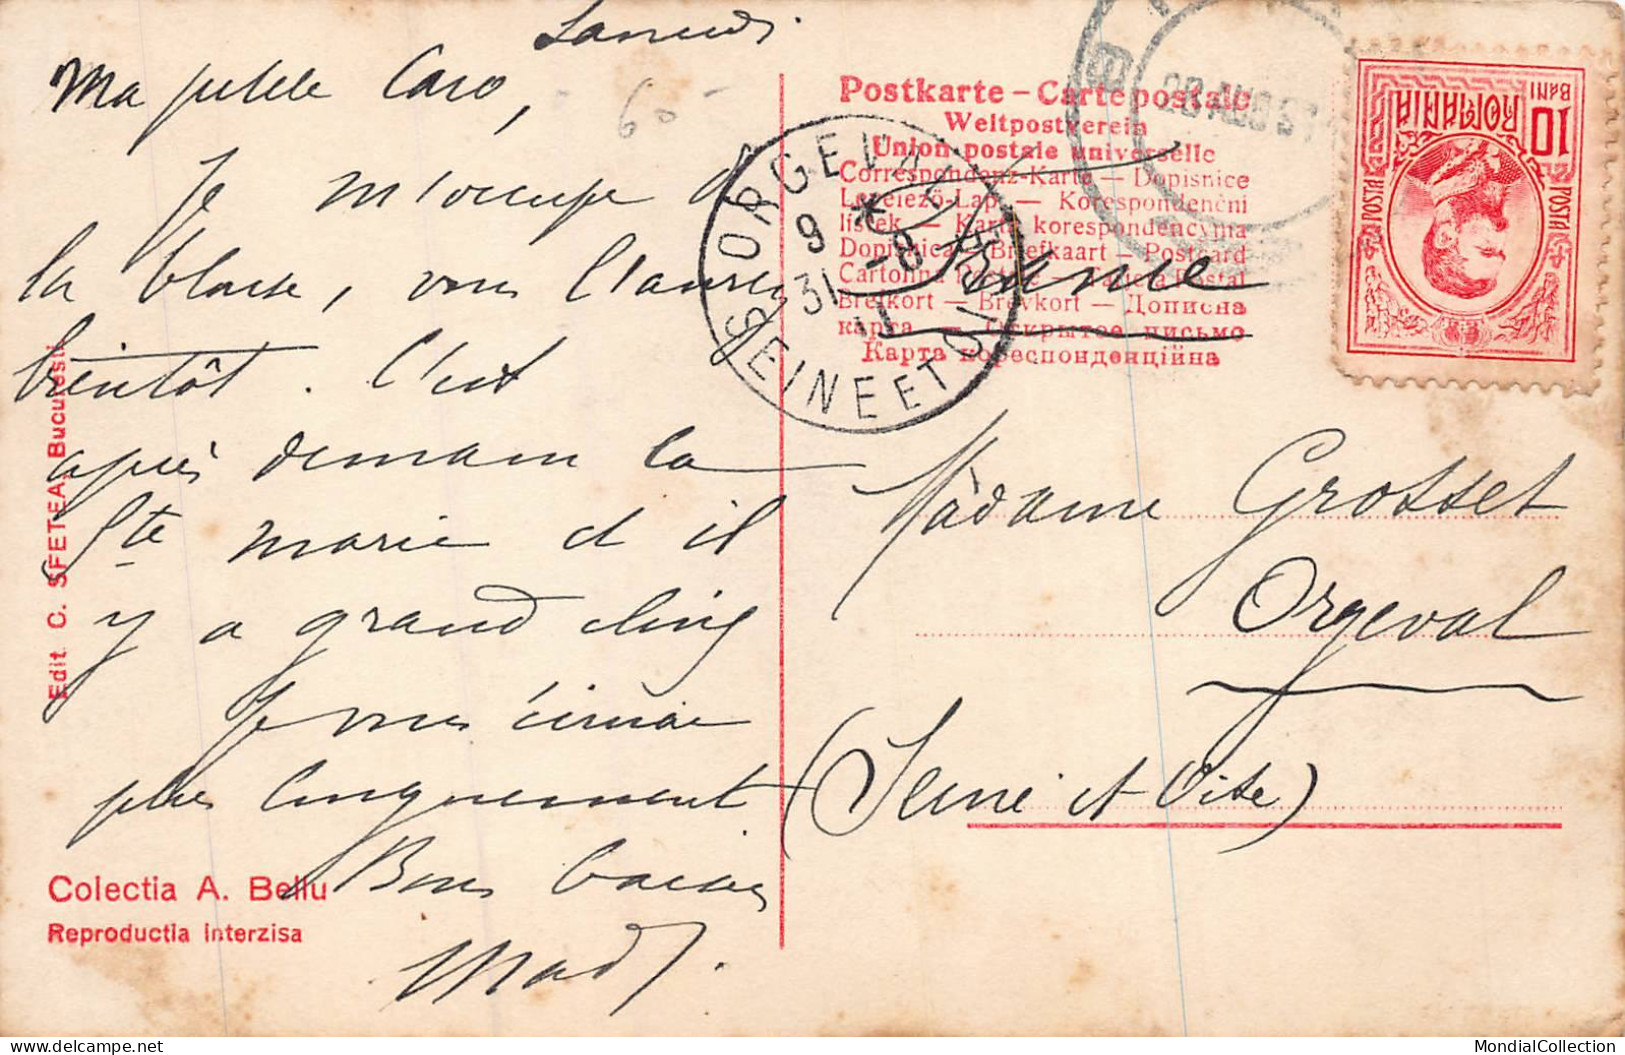 Samedi
Ma petite Caro,
60-
Je m'occupe de
la blouse, vous l'aurez
bientôt. C'est
après demain la
Ste marie et il
y a grand
Je vous écrirai
plus longuement
Bons baisers
Mad.
Edit. C. SFETEA, Bucuresti
Colectia A. Bellu
Reproductia interzisa
Postkarte – Carte postale
Weltpostverein
Union postale universelle
Correspondenz-Karte — Dopisnice
Levelező-Lap — Korespondenční
lístek — Karta korespondencyjna
Dopisnica — Briefkaart — Postcard
Cartolina Postale — Tarjeta Postal
Brefkort — Brevkort — Дописна
карта — Открытое письмо
Карта кореспонденційна
France
ORGEVAL
9 *
31 -8
11
SEINE ET OISE
28 AUG
10 BANI
ROMANIA
POSTA
POSTA
Madame Grosset
Orgeval
(Seine et Oise)
MondialCollection
delcampe.net